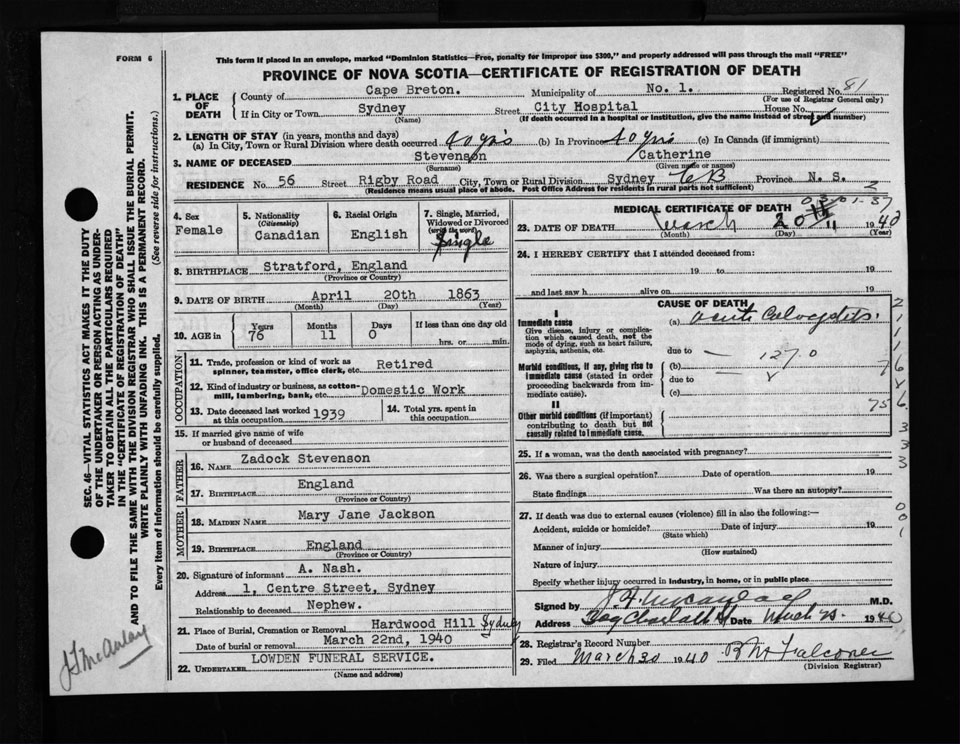 FORM 6
This form if placed in an envelope, marked "Dominion Statistics—Free, penalty for improper use $300," and properly addressed will pass through the mail "FREE"
PROVINCE OF NOVA SCOTIA—CERTIFICATE OF REGISTRATION OF DEATH
1. PLACE OF DEATH
County of Cape Breton. Municipality of No. 1. Registered No. 81
(For use of Registrar General only)
If in City or Town Sydney Street City Hospital House No.
(Name) (If death occurred in a hospital or institution, give the name instead of street and number)
2. LENGTH OF STAY (in years, months and days)
(a) In City, Town or Rural Division where death occurred 40 yrs (b) In Province 40 yrs (c) In Canada (if immigrant)
3. NAME OF DECEASED Stevenson Catherine
(Surname) (Given name or names)
RESIDENCE No. 56 Street Rigby Road City, Town or Rural Division Sydney CB Province N. S.
(Residence means usual place of abode. Post Office Address for residents in rural parts not sufficient)
4. Sex
Female
5. Nationality
(Citizenship)
Canadian
6. Racial Origin
English
7. Single, Married, Widowed or Divorced
(write the word)
Single
8. BIRTHPLACE Stratford, England
(Province or Country)
9. DATE OF BIRTH April 20th 1863
(Month) (Day) (Year)
10. AGE in
Years Months Days If less than one day old
76 11 0 hrs. or min.
OCCUPATION
11. Trade, profession or kind of work as spinner, teamster, office clerk, etc. Retired
12. Kind of industry or business, as cotton-mill, lumbering, bank, etc. Domestic Work
13. Date deceased last worked at this occupation 1939
14. Total yrs. spent in this occupation
15. If married give name of wife or husband of deceased
FATHER
16. NAME Zadock Stevenson
17. BIRTHPLACE England
(Province or Country)
MOTHER
18. MAIDEN NAME Mary Jane Jackson
19. BIRTHPLACE England
(Province or Country)
20. Signature of informant A. Nash.
Address 1, Centre Street, Sydney
Relationship to deceased Nephew.
21. Place of Burial, Cremation or Removal Hardwood Hill Sydney
Date of burial or removal March 22nd, 1940
22. UNDERTAKER LOWDEN FUNERAL SERVICE.
(Name and address)
MEDICAL CERTIFICATE OF DEATH
23. DATE OF DEATH March 20 1940
(Month) (Day) (Year)
24. I HEREBY CERTIFY that I attended deceased from:
19 to 19
and last saw h alive on 19
CAUSE OF DEATH
I
Immediate cause
Give disease, injury or complication which caused death, not the mode of dying, such as heart failure, asphyxia, asthenia, etc.
(a) Acute
due to
(b) 127.0
Morbid conditions, if any, giving rise to immediate cause (stated in order proceeding backwards from immediate cause).
due to
(c)
II
Other morbid conditions (if important) contributing to death but not causally related to immediate cause.
25. If a woman, was the death associated with pregnancy?
26. Was there a surgical operation? Date of operation 19
State findings Was there an autopsy?
27. If death was due to external causes (violence) fill in also the following:—
Accident, suicide or homicide? Date of injury 19
(State which)
Manner of injury
(How sustained)
Nature of injury
Specify whether injury occurred in industry, in home, or in public place
Signed by M.D.
Address Date March 1940
28. Registrar's Record Number
29. Filed March 30 1940 Falconer
(Division Registrar)
SEC. 46—VITAL STATISTICS ACT MAKES IT THE DUTY OF THE UNDERTAKER OR PERSON ACTING AS UNDERTAKER TO OBTAIN ALL THE PARTICULARS REQUIRED IN THE "CERTIFICATE OF REGISTRATION OF DEATH" AND TO FILE THE SAME WITH THE DIVISION REGISTRAR WHO SHALL ISSUE THE BURIAL PERMIT.
WRITE PLAINLY WITH UNFADING INK. THIS IS A PERMANENT RECORD.
Every item of information should be carefully supplied. (See reverse side for instructions.)